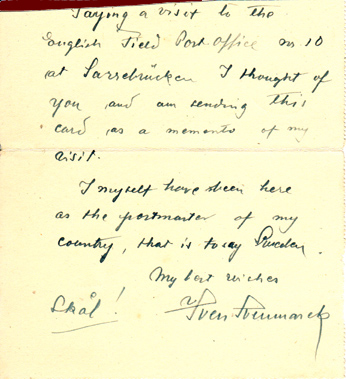 Paying a visit to the
English Field Post Office no 10
at Sarrebrücken I thought of
you and am sending this
card as a memento of my
visit.
I myself have been here
as the postmaster of my
country, that is to say Sweden.
My best wishes
Skål!
Sven